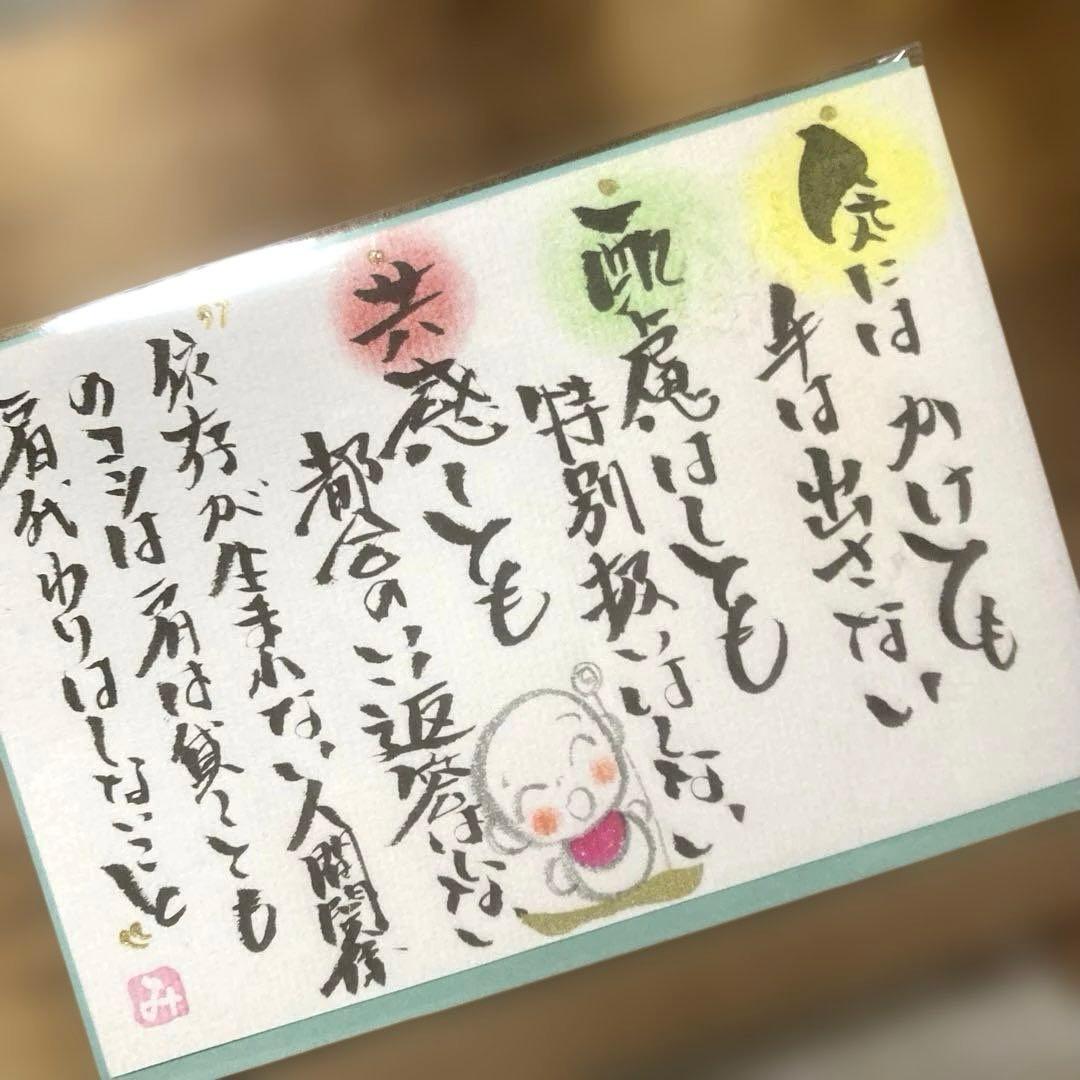 気にはかけても
手は出さない
配慮はしても
特別扱いはしない
共感しても
都合のいい返答はしない
依存が生まれない人間関係
のコツは肩は貸しても
肩代わりはしないこと
み